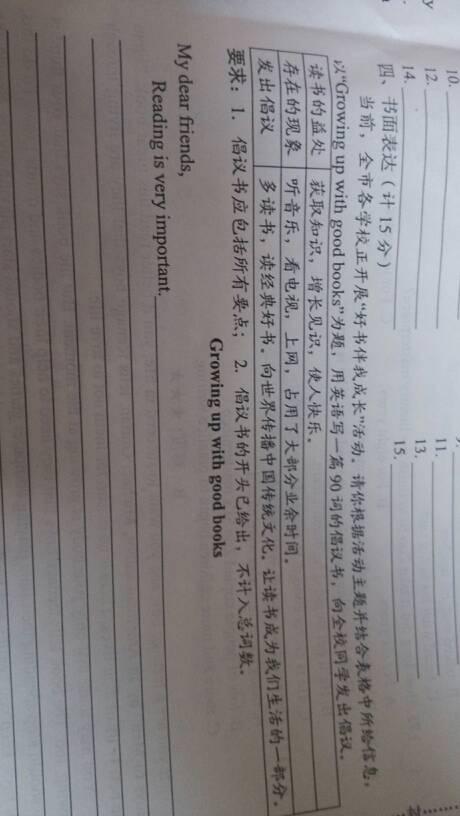 10.
11.
12.
13.
14.
15.
四、书面表达（计 15 分）
当前，全市各学校正开展“好书伴我成长”活动。请你根据活动主题并结合表格中所给信息，
以“Growing up with good books”为题，用英语写一篇 90 词的倡议书，向全校同学发出倡议。
读书的益处 获取知识，增长见识，使人快乐。
存在的现象 听音乐，看电视，上网，占用了大部分业余时间。
发出倡议 多读书，读经典好书。向世界传播中国传统文化，让读书成为我们生活的一部分。
要求：1. 倡议书应包括所有要点； 2. 倡议书的开头已给出，不计入总词数。
Growing up with good books
My dear friends,
Reading is very important.